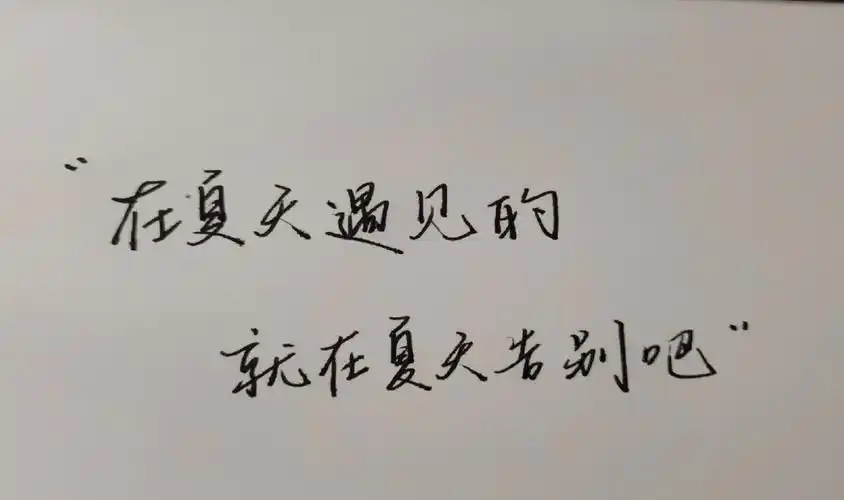 “在夏天遇见的
就在夏天告别吧”